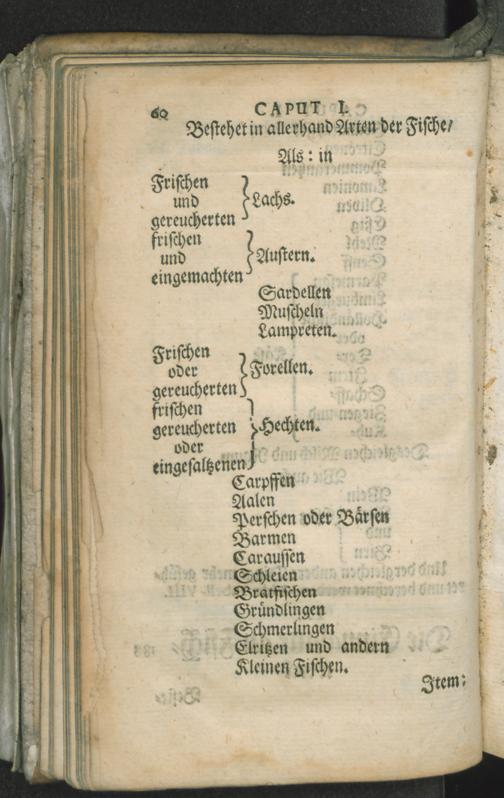 60 CAPUT I.
Bestehet in allerhand Arten der Fische/
Als: in
Frischen
und
gereucherten
} Lachs.
frischen
und
eingemachten
} Austern.
Sardellen
Muscheln
Lampreten.
Frischen
oder
gereucherten
} Forellen.
frischen
gereucherten
oder
eingesaltzenen
} Hechten.
Carpffen
Aalen
Perschen oder Bärsen
Barmen
Caraussen
Schleien
Bratfischen
Gründlingen
Schmerlingen
Elritzen und andern
Kleinen Fischen.
Item: